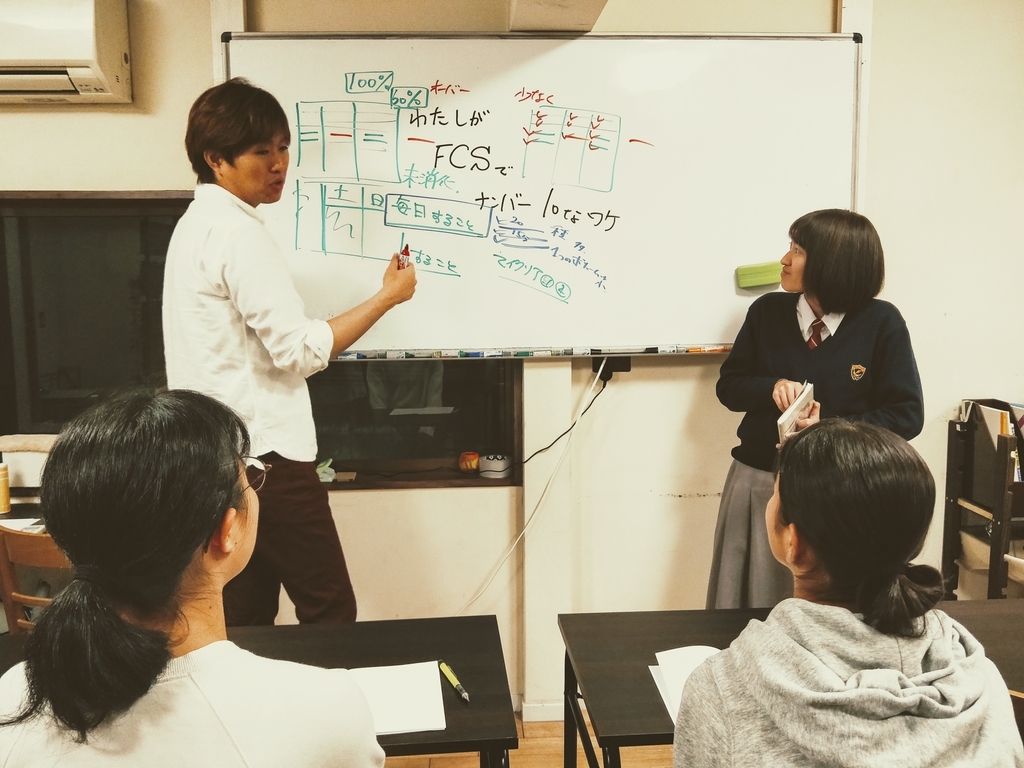 100%
60%
オーバー
少なく
わたしが
FCSで
未消化
ナンバー10なワケ
土
日
毎日すること
すること
20
150
マイクリア①②